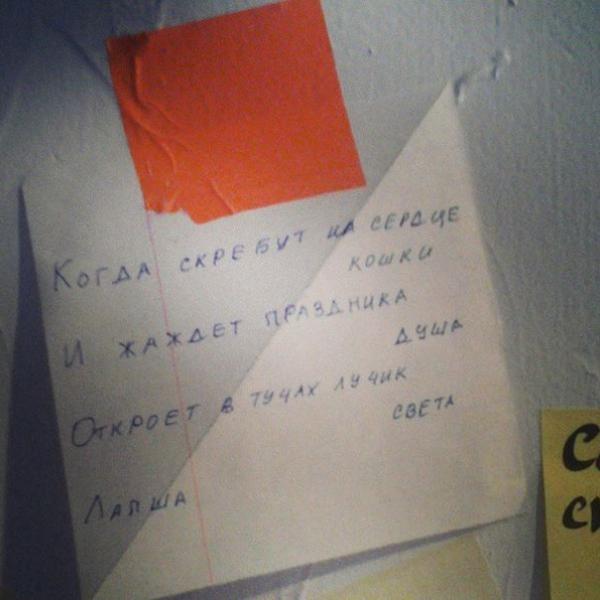 Когда скребут на сердце
кошки
И жаждет праздника
душа
Откроет в тучах лучик
света
Лапша